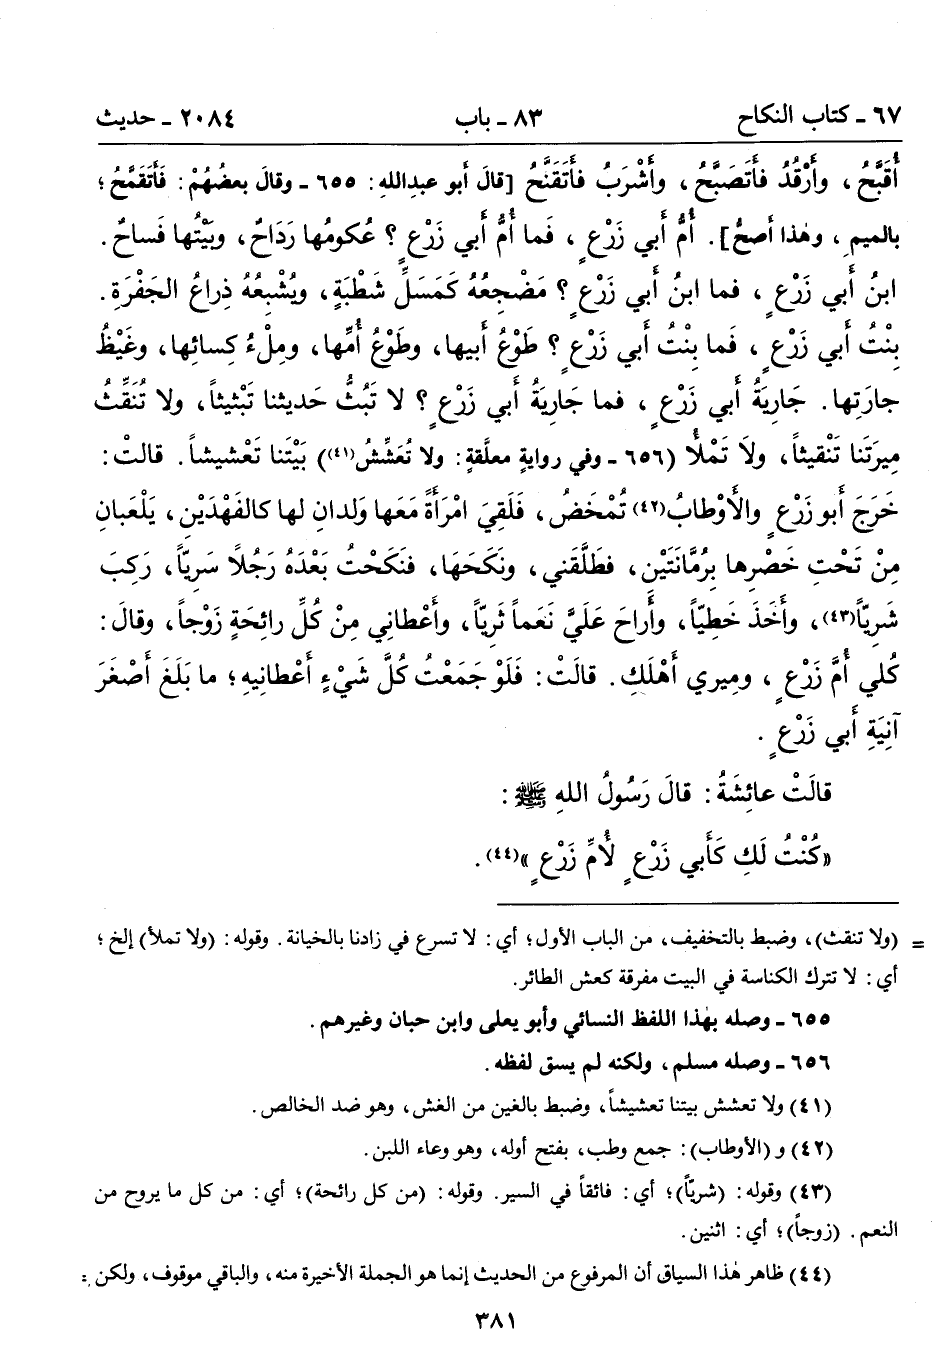 ٦٧ ـ كتاب النكاح ٨٣ ـ باب ٢٠٨٤ ـ حديث
أُقَبَّحُ، وأَرْقُدُ فأَتَصَبَّحُ، وأَشْرَبُ فأَتَقَنَّحُ [قالَ أبو عبدِاللهِ: ٦٥٥ ـ وقالَ بعضُهُمْ: فَأَتَقَمَّحُ؛
بالميمِ، وهٰذا أصحُّ]. أُمُّ أَبي زَرْعٍ، فَما أُمُّ أَبي زَرْعٍ؟ عُكومُها رَدَاحٌ، وبَيْتُها فَساحٌ.
ابنُ أَبي زَرْعٍ، فما ابنُ أَبي زَرْعٍ؟ مَضْجِعُهُ كَمَسَلِّ شَطْبَةٍ، ويُشْبِعُهُ ذِراعُ الجَفْرَةِ.
بِنْتُ أَبي زَرْعٍ، فَما بِنْتُ أَبي زَرْعٍ؟ طَوْعُ أَبيها، وطَوْعُ أُمِّها، ومِلْءُ كِسائِها، وغَيْظُ
جارَتِها. جَارِيَةُ أَبي زَرْعٍ، فما جَارِيَةُ أَبي زَرْعٍ؟ لا تَبُثُّ حَديثنا تَبْثيثاً، ولا تُنَقِّثُ
مِيرَتَنا تَنْقيثاً، ولَا تَمْلَأُ (٦٥٦ ـ وفي روايةٍ معلَّقةٍ: ولا تُعَشِّشُ(٤١)) بَيْتَنا تَعْشيشاً. قالتْ:
خَرَجَ أَبو زَرْعٍ والأَوْطابُ(٤٢) تُمْخَضُ، فَلَقِيَ امْرَأَةً مَعَها وَلدانِ لها كالفَهْدَيْنِ، يَلْعَبانِ
مِنْ تَحْتِ خَصْرِها بِرُمَّانَتَيْنِ، فطَلَّقَني، ونَكَحَهَا، فنَكَحْتُ بَعْدَهُ رَجُلاً سَريّاً، رَكِبَ
شَريّاً(٤٣)، وأَخَذَ خَطيّاً، وأَراحَ عَلَيَّ نَعَماً ثَريّاً، وأَعْطاني مِنْ كُلِّ رائحَةٍ زَوْجاً، وقالَ:
كُلي أُمَّ زَرْعٍ، ومِيري أَهْلَكِ. قالَتْ: فَلَوْ جَمَعْتُ كُلَّ شَيْءٍ أَعْطانِيهِ؛ ما بَلَغَ أَصْغَرَ
آنِيَةِ أَبي زَرْعٍ.
قالَتْ عائِشَةُ: قالَ رَسُولُ اللهِ ﷺ:
«كُنْتُ لَكِ كَأَبي زَرْعٍ لُأمِّ زَرْعٍ»(٤٤).
= (ولا تنقث)، وضبط بالتخفيف، من الباب الأول؛ أي: لا تسرع في زادنا بالخيانة. وقوله: (ولا تملأ) إلخ؛
أي: لا تترك الكناسة في البيت مفرقة كعش الطائر.
٦٥٥ ـ وصله بهٰذا اللفظ النسائي وأبو يعلى وابن حبان وغيرهم.
٦٥٦ ـ وصله مسلم، ولكنه لم يسق لفظه.
(٤١) ولا تعشش بيتنا تعشيشاً، وضبط بالغين من الغش، وهو ضد الخالص.
(٤٢) و (الأوطاب): جمع وطب، بفتح أوله، وهو وعاء اللبن.
(٤٣) وقوله: (شريّاً)؛ أي: فائقاً في السير. وقوله: (من كل رائحة)؛ أي: من كل ما يروح من
النعم. (زوجاً)؛ أي: اثنين.
(٤٤) ظاهر هٰذا السياق أن المرفوع من الحديث إنما هو الجملة الأخيرة منه، والباقي موقوف، ولكن =
٣٨١